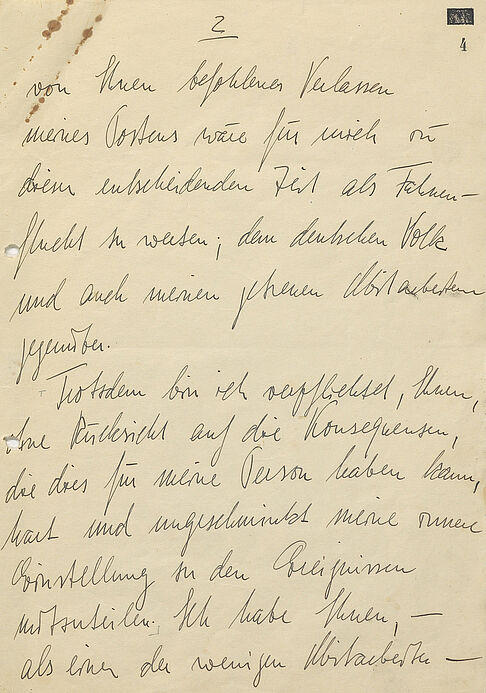 2
4
von Ihnen befohlenes Verlassen
meines Postens wäre für mich in
dieser entscheidenden Zeit als Fahnen-
flucht zu werten; dem deutschen Volk
und auch meinen getreuen Mitarbeitern
gegenüber.
Trotzdem bin ich verpflichtet, Ihnen,
ohne Rücksicht auf die Konsequenzen,
die dies für meine Person haben kann,
hart und ungeschminkt meine innere
Einstellung zu den Ereignissen
mitzuteilen. Ich habe Ihnen, —
als einer der wenigen Mitarbeiter —